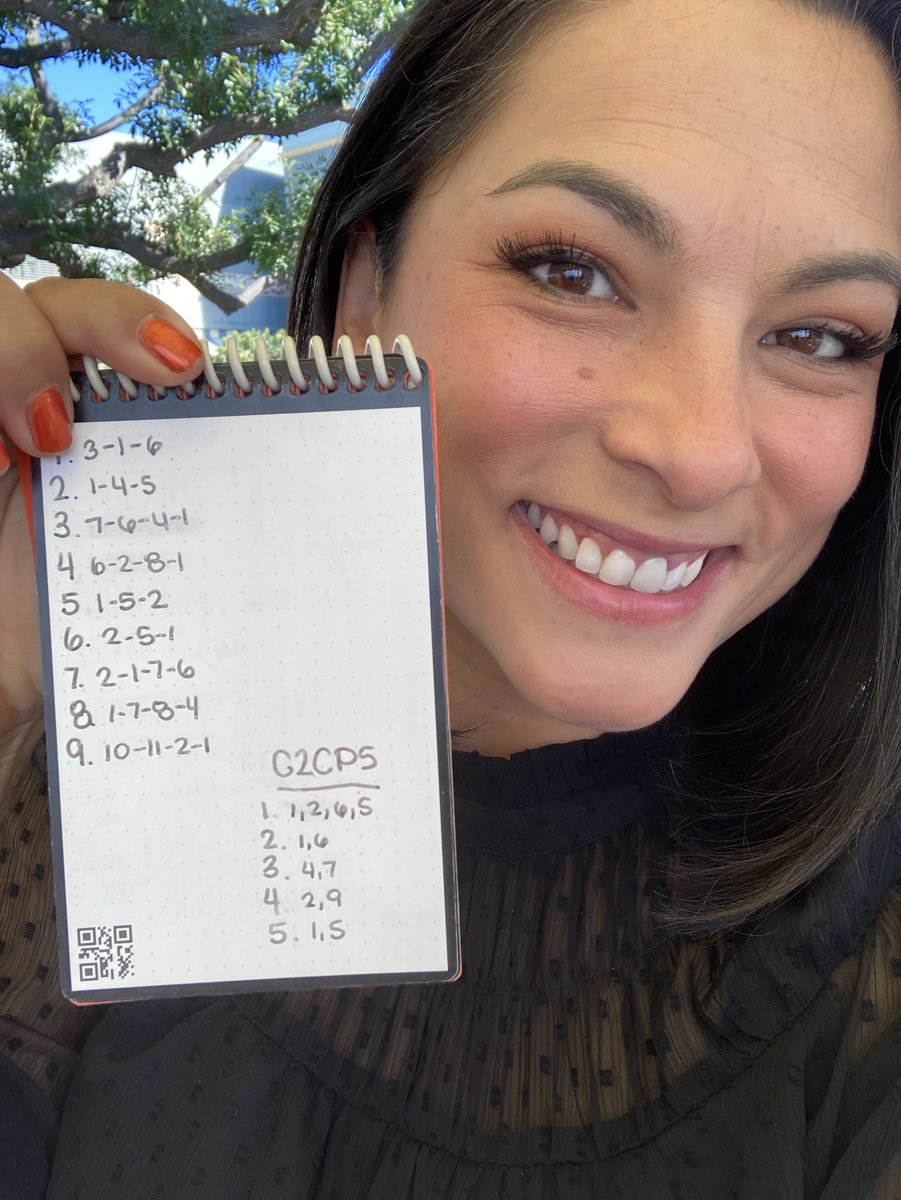 1. 3-1-6
2. 1-4-5
3. 7-6-4-1
4 6-2-8-1
5 1-5-2
6. 2-5-1
7. 2-1-7-6
8. 1-7-8-4
9. 10-11-2-1
G2CP5
1. 1,2,6,5
2. 1,6
3. 4,7
4 2,9
5. 1,5